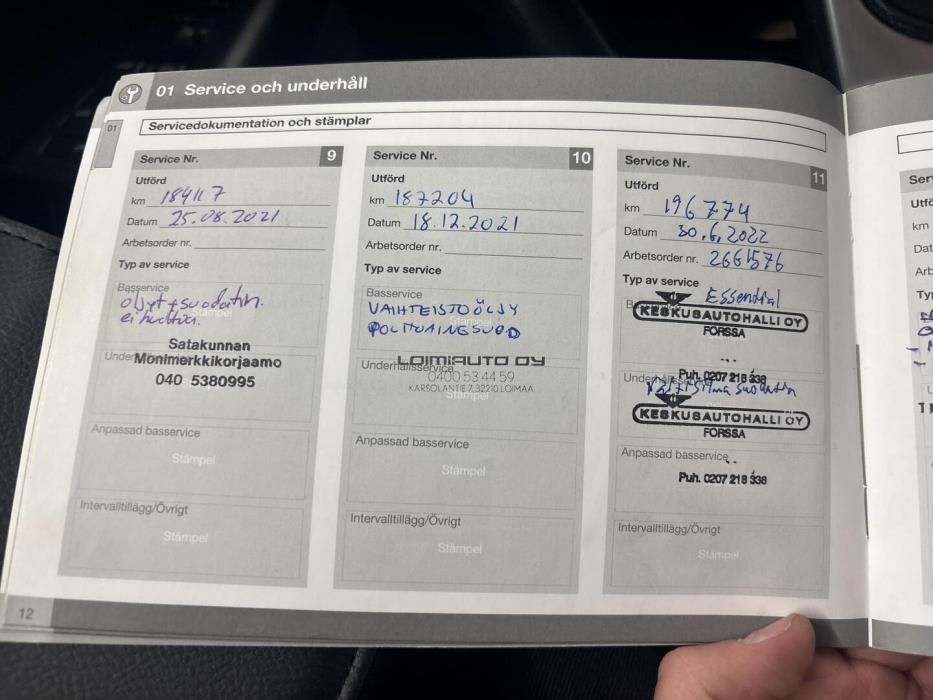 01 Service och underhåll
01
Servicedokumentation och stämplar
Service Nr. 9
Utförd
km 184117
Datum 25.08.2021
Arbetsorder nr.
Typ av service
Basservice
öljyt+suodatin.
Stämpel
Satakunnan
Monimerkkikorjaamo
040 5380995
Anpassad basservice
Stämpel
Intervalltillägg/Övrigt
Stämpel
Service Nr. 10
Utförd
km 187204
Datum 18.12.2021
Arbetsorder nr.
Typ av service
Basservice
VAIHTEISTOÖLJY
Stämpel
POLTTOAINESUOD
LOIMIAUTO OY
Underhållsservice
0400 53 44 59
KARSOLANTIE 7, 32210 LOIMAA
Stämpel
Anpassad basservice
Stämpel
Intervalltillägg/Övrigt
Stämpel
Service Nr. 11
Utförd
km 196774
Datum 30.6.2022
Arbetsorder nr. 2661576
Typ av service
Essential
KESKUSAUTOHALLI OY
FORSSA
Puh. 0207 218 338
suodatin
KESKUSAUTOHALLI OY
FORSSA
Anpassad basservice
Puh. 0207 218 338
Intervalltillägg/Övrigt
Stämpel
12
km